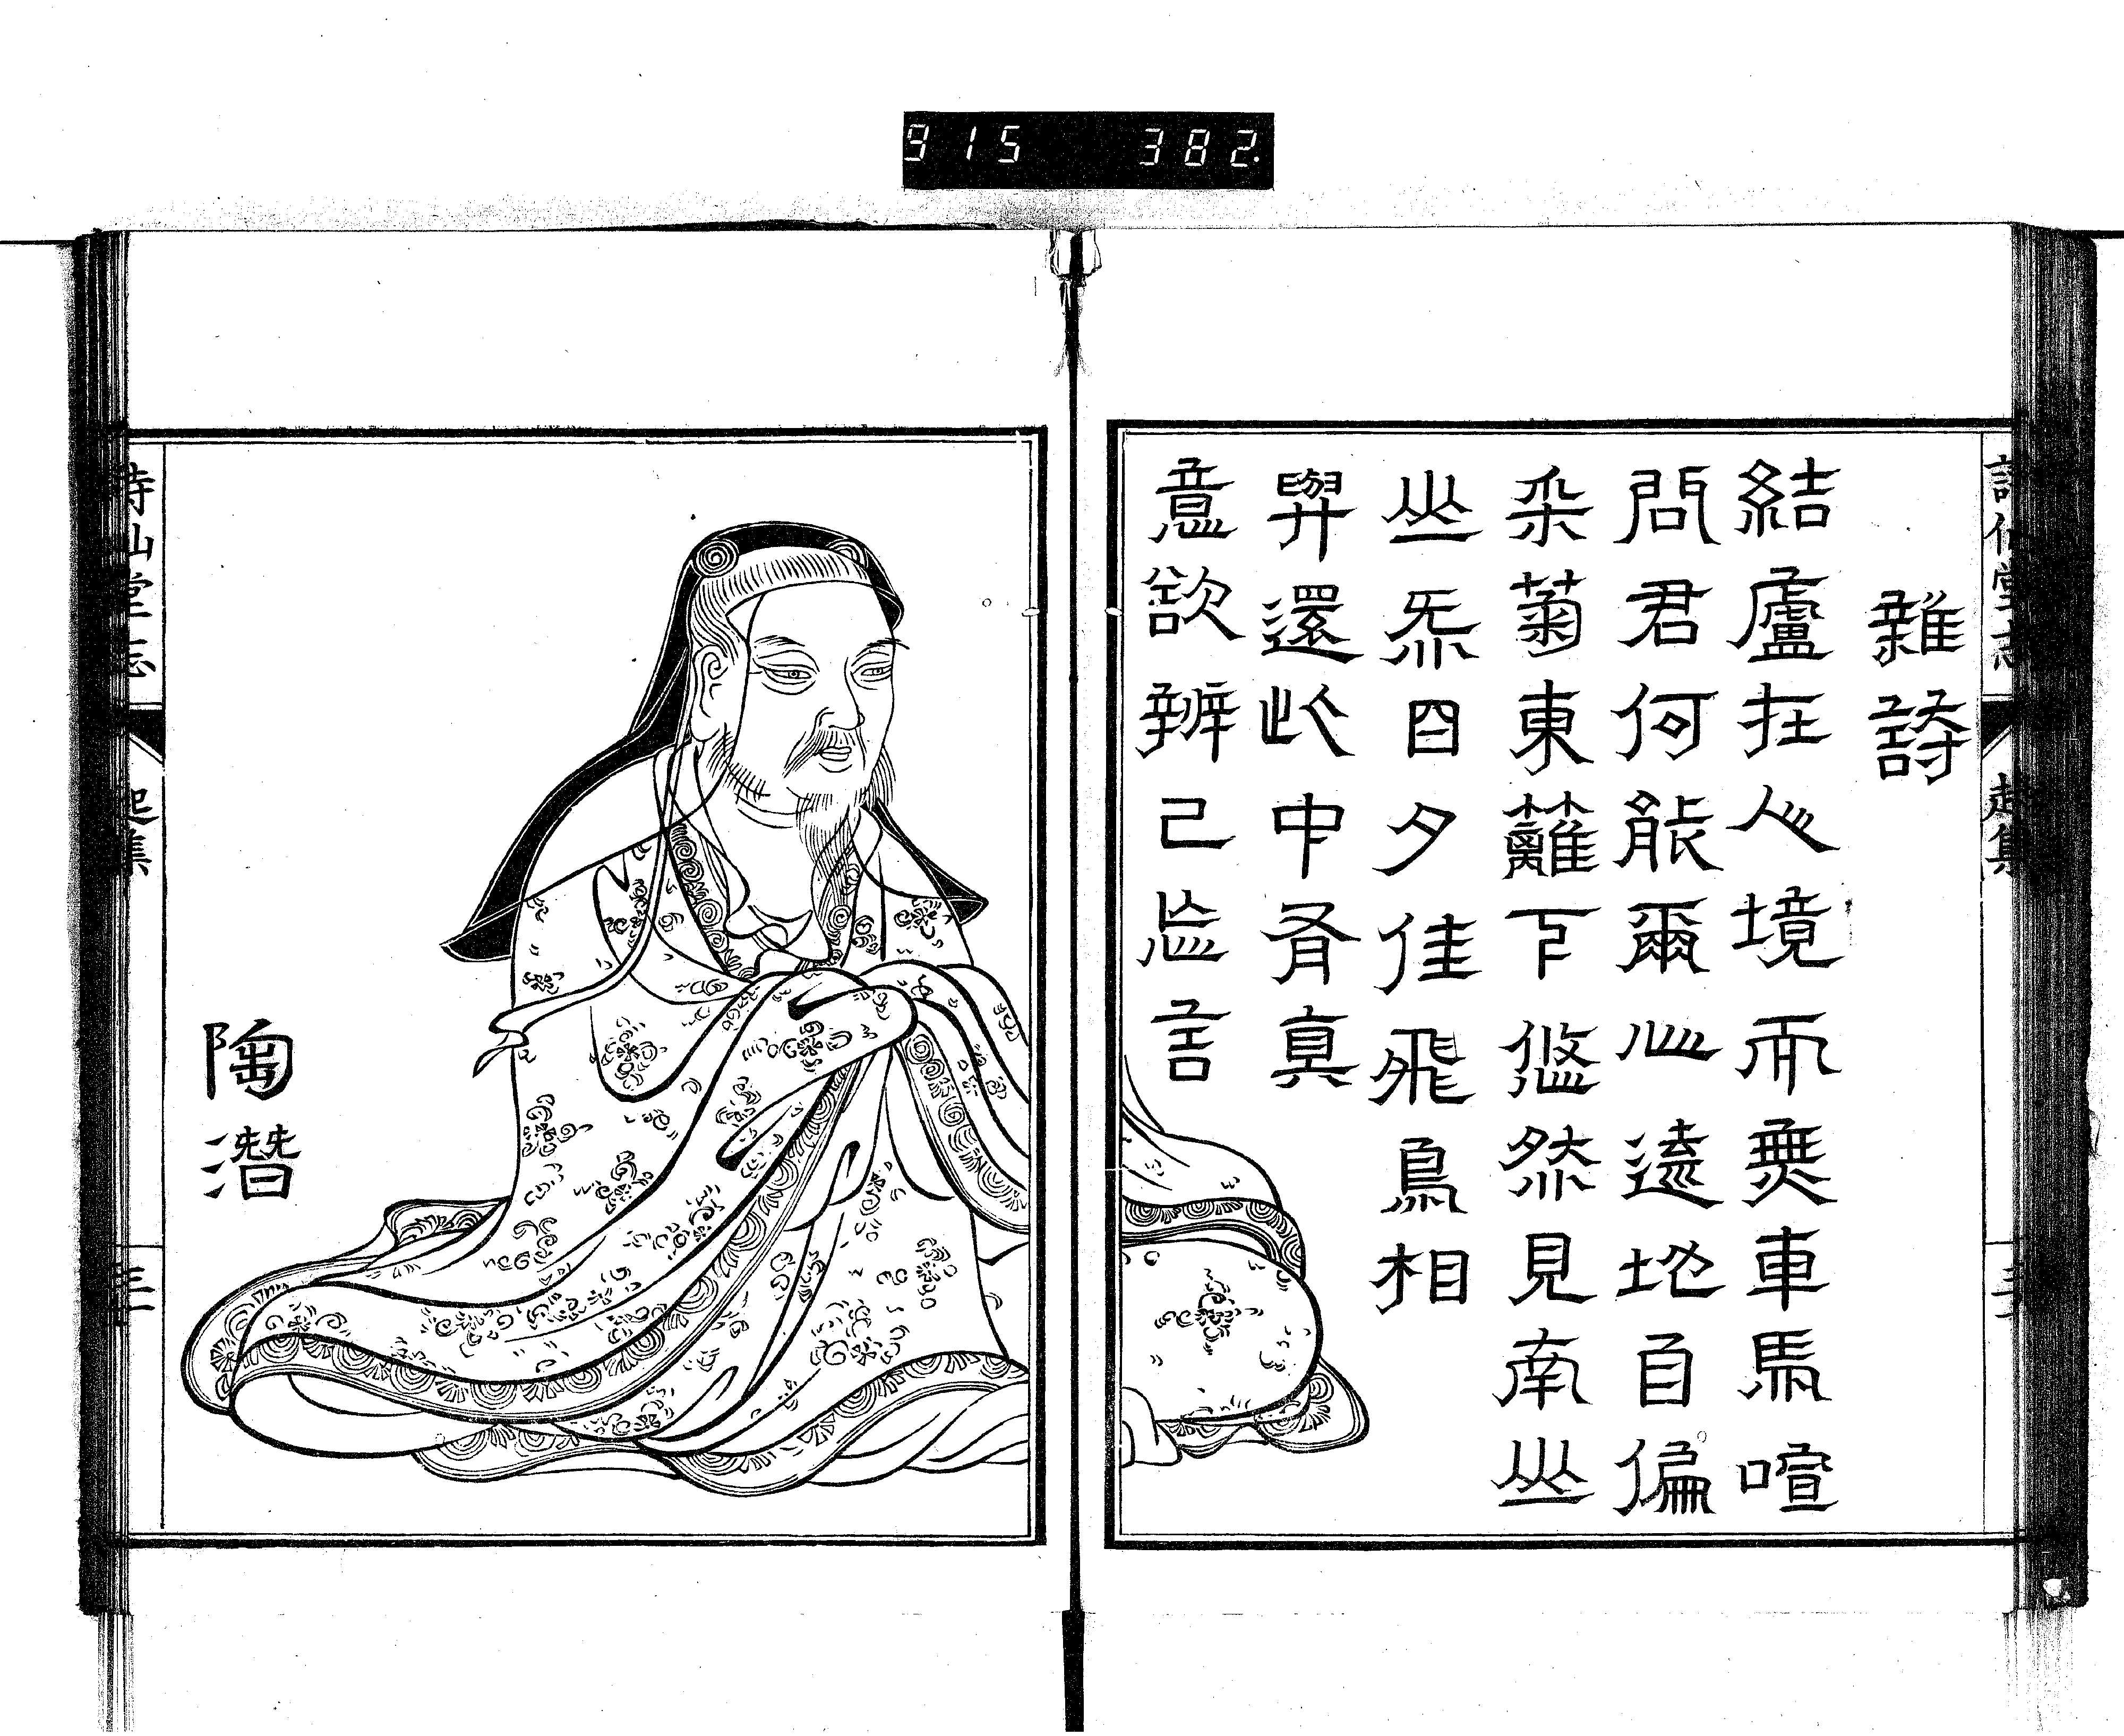 915 382
詩仙堂志 起集
雜詩
結廬在人境而無車馬喧
問君何能爾心遠地自偏
采菊東籬下悠然見南山
山氣日夕佳飛鳥相
與還此中有真
意欲辨已忘言
陶潛
詩仙堂志 起集 三